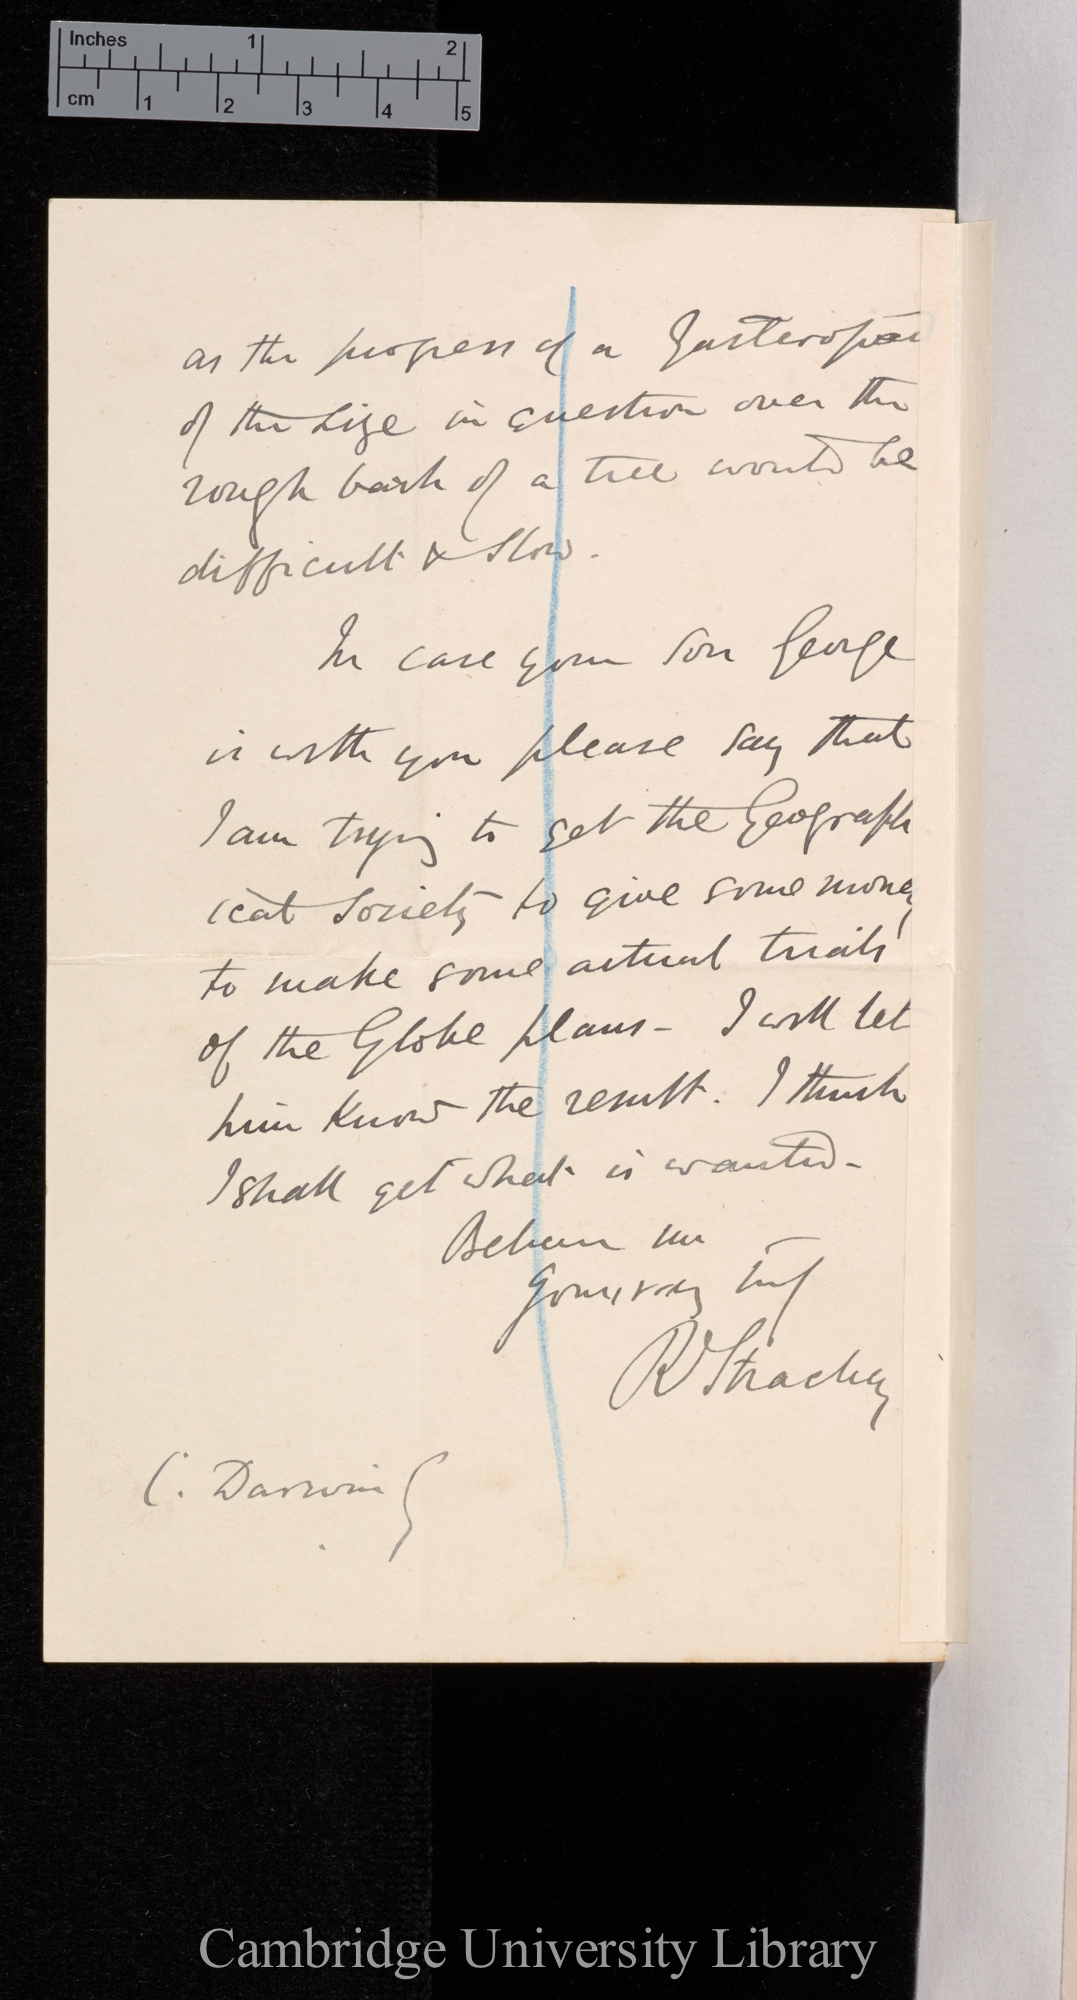 Inches 1 2
cm 1 2 3 4 5
as the progress of a Gasteropod
of the size in question over the
rough bark of a tree would be
difficult & slow.
In case your son George
is with you please say that
I am trying to get the Geograph
ical Society to give some money
to make some actual trials
of the Globe plans - I will let
him know the result. I think
I shall get what is wanted -
Believe me
Yours very truly
R Strachey
C. Darwin
Cambridge University Library